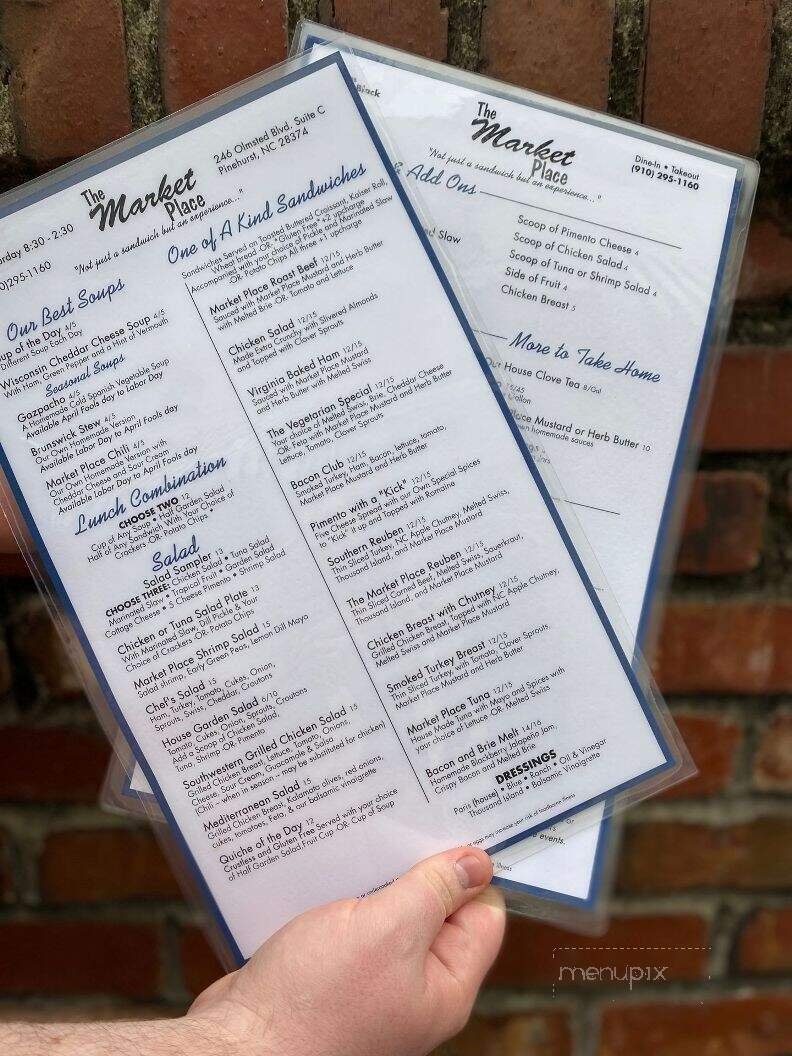 246 Olmsted Blvd, Suite C
Pinehurst, NC 28374
The
Market
Place
"Not just a sandwich but an experience..."
8:30 - 2:30
295-1160
Our Best Soups
of the Day 4/5
Different Soup Each Day
Wisconsin Cheddar Cheese Soup 4/5
With Ham, Green Pepper and a Hint of Vermouth
Seasonal Soups
Gazpacho 4/5
A Homemade Cold Spanish Vegetable Soup
Available April Fools day to Labor Day
Brunswick Stew 4/5
Our Own Homemade Version
Available Labor Day to April Fools day
Market Place Chili 4/5
Our Own Homemade Version with
Cheddar Cheese and Sour Cream
Available Labor Day to April Fools day
Lunch Combination
CHOOSE TWO 12
Cup of Any Soup • Half Garden Salad
Half of Any Sandwich With Your Choice of
Crackers -OR- Potato Chips •
Salad
Salad Sampler 13
CHOOSE THREE: Chicken Salad • Tuna Salad
Marinated Slaw • Tropical Fruit • Garden Salad
Cottage Cheese • 5 Cheese Pimento • Shrimp Salad
Chicken or Tuna Salad Plate 13
With Marinated Slaw, Dill Pickle & Your
Choice of Crackers -OR- Potato Chips
Market Place Shrimp Salad 15
Salad shrimp, Early Green Peas, Lemon Dill Mayo
Chef's Salad 15
Ham, Turkey, Tomato, Cukes, Onion,
Sprouts, Swiss, Cheddar, Croutons
House Garden Salad 6/10
Tomato, Cukes, Onion, Sprouts, Croutons
Add a Scoop of Chicken Salad,
Tuna, Shrimp -OR- Pimento
Southwestern Grilled Chicken Salad 15
Grilled Chicken Breast, Lettuce, Tomato, Onions,
Cheese, Sour Cream, Guacamole & Salsa
(Chili – when in season – may be substituted for chicken)
Mediterranean Salad 15
Grilled Chicken Breast, Kalamata olives, red onions,
cukes, tomatoes, Feta, & our balsamic vinaigrette
Quiche of the Day 12
Crustless and Gluten Free Served with your choice
of Half Garden Salad Fruit Cup -OR- Cup of Soup
One of A Kind Sandwiches
Sandwiches Served on Toasted Buttered Croissant, Kaiser Roll,
Wheat bread -OR- *Gluten Free* +2 upcharge
Accompanied with your choice of Pickle and Marinated Slaw
-OR- Potato Chips All three +1 upcharge
Market Place Roast Beef 12/15
Sauced with Market Place Mustard and Herb Butter
with Melted Brie -OR- Tomato and Lettuce
Chicken Salad 12/15
Made Extra Crunchy with Slivered Almonds
and Topped with Clover Sprouts
Virginia Baked Ham 12/15
Sauced with Market Place Mustard
and Herb Butter with Melted Swiss
The Vegetarian Special 12/15
Your choice of Melted Swiss, Brie, Cheddar Cheese
-OR- Feta with Market Place Mustard and Herb Butter
Lettuce, Tomato, Clover Sprouts
Bacon Club 12/15
Smoked Turkey, Ham, Bacon, lettuce, tomato,
Market Place Mustard and Herb Butter
Pimento with a "Kick" 12/15
Five Cheese Spread with our Own Special Spices
to "Kick" it up and Topped with Romaine
Southern Reuben 12/15
Thin Sliced Turkey, NC Apple Chutney, Melted Swiss,
Thousand Island, and Market Place Mustard
The Market Place Reuben 12/15
Thin Sliced Corned Beef, Melted Swiss, Sauerkraut,
Thousand Island, and Market Place Mustard
Chicken Breast with Chutney 12/15
Grilled Chicken Breast, Topped with NC Apple Chutney,
Melted Swiss and Market Place Mustard
Smoked Turkey Breast 12/15
Thin Sliced Turkey, with Tomato, Clover Sprouts,
Market Place Mustard and Herb Butter
Market Place Tuna 12/15
House Made Tuna with Mayo and Spices with
your choice of Lettuce -OR- Melted Swiss
Bacon and Brie Melt 14/16
Homemade Blackberry Jalapeño Jam,
Crispy Bacon and Melted Brie
DRESSINGS
Paris (house) • Blue • Ranch • Oil & Vinegar
Thousand Island • Balsamic Vinaigrette
eggs may increase your risk of foodborne illness
The
Market
Place
"Not just a sandwich but an experience..."
Dine-In • Takeout
(910) 295-1160
Black
& Add Ons
Slaw
Scoop of Pimento Cheese 4
Scoop of Chicken Salad 4
Scoop of Tuna or Shrimp Salad 4
Side of Fruit 4
Chicken Breast 5
More to Take Home
Our House Clove Tea 8/Gal
Mustard or Herb Butter 10
homemade sauces
events.
illness
menupix